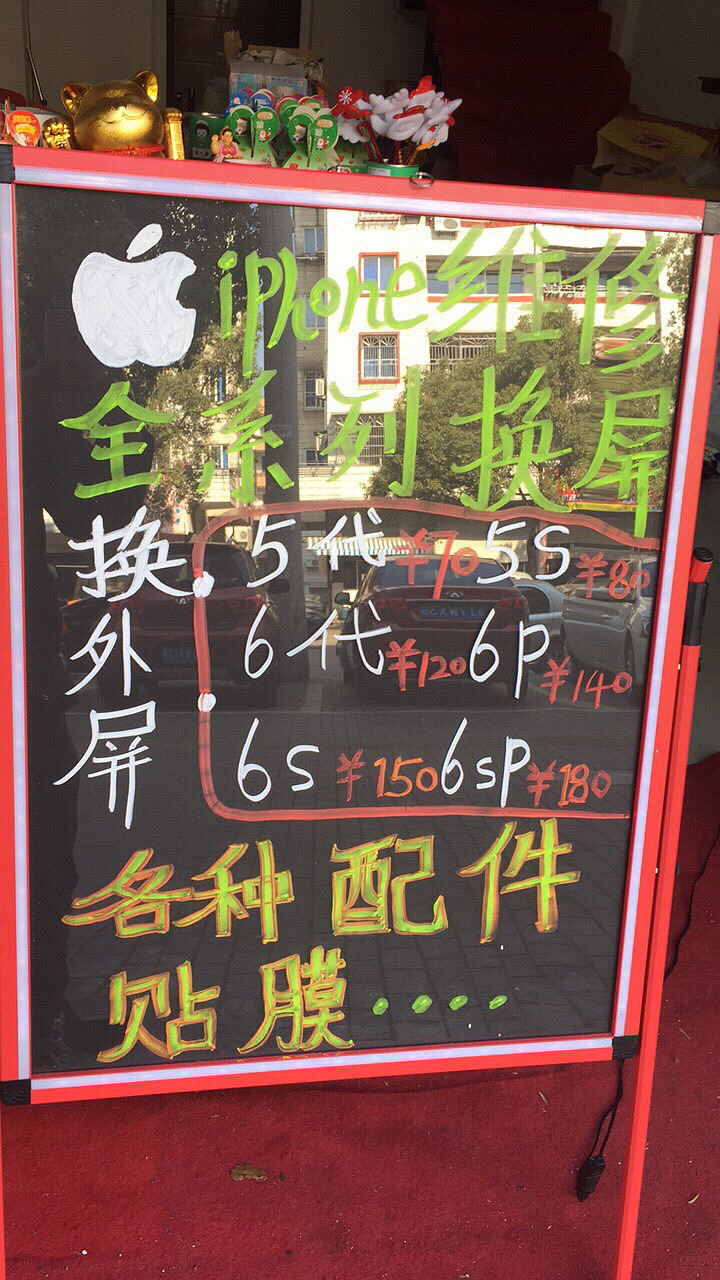 iphone维修
全系列换屏
换外屏
5代 ¥70 5S ¥80
6代 ¥120 6P ¥140
6S ¥150 6SP ¥180
各种配件
贴膜····